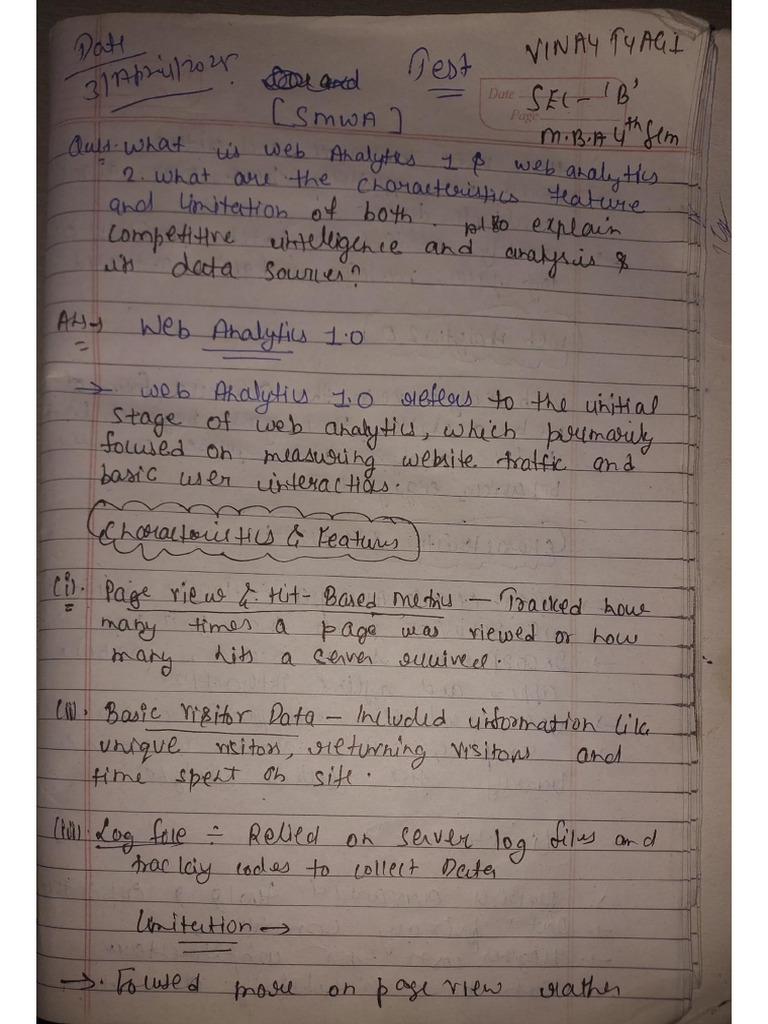 Date
3/April/2025
Test
[SMWA]
VINAY TYAGI
Date
SEC- 'B'
Page
M.B.A 4th Sem
Ques. What is web Analytics 1 & web analytics
2. what are the characteristics feature
and limitation of both. Also explain
competitive intelligence and analysis &
its data sources?
Ans→ Web Analytics 1.0
→ Web Analytics 1.0 refers to the initial
stage of web analytics, which primarily
focused on measuring website traffic and
basic user interactions.
Characteristics & Features
(i). Page view & Hit-Based metrics — Tracked how
many times a page was viewed or how
many hits a server received.
(ii). Basic Visitor Data — Included information like
unique visitors, returning visitors and
time spent on site.
(iii). Log file ÷ Relied on server log files and
tracking codes to collect Data
Limitation →
→ . Focused more on page view rather